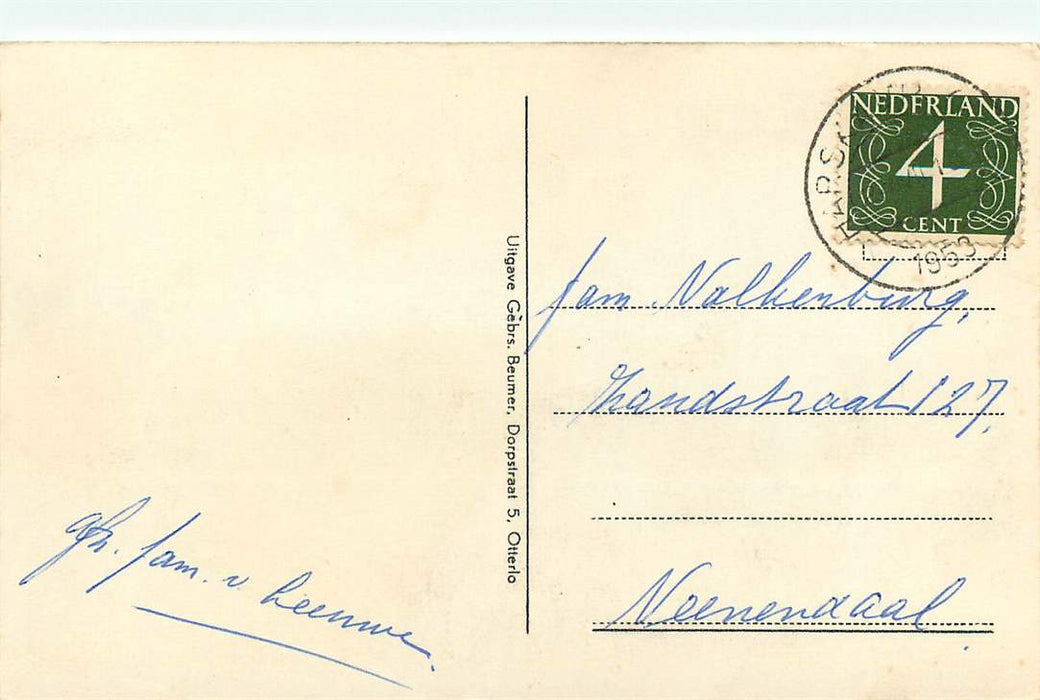 NEDERLAND
4
CENT
HARSKAMP
1953
Uitgave Gebrs. Beumer, Dorpstraat 5, Otterlo
fam. Valkenburg,
Zandstraat 127,
Veenendaal.
fam. v. Leeuwe.